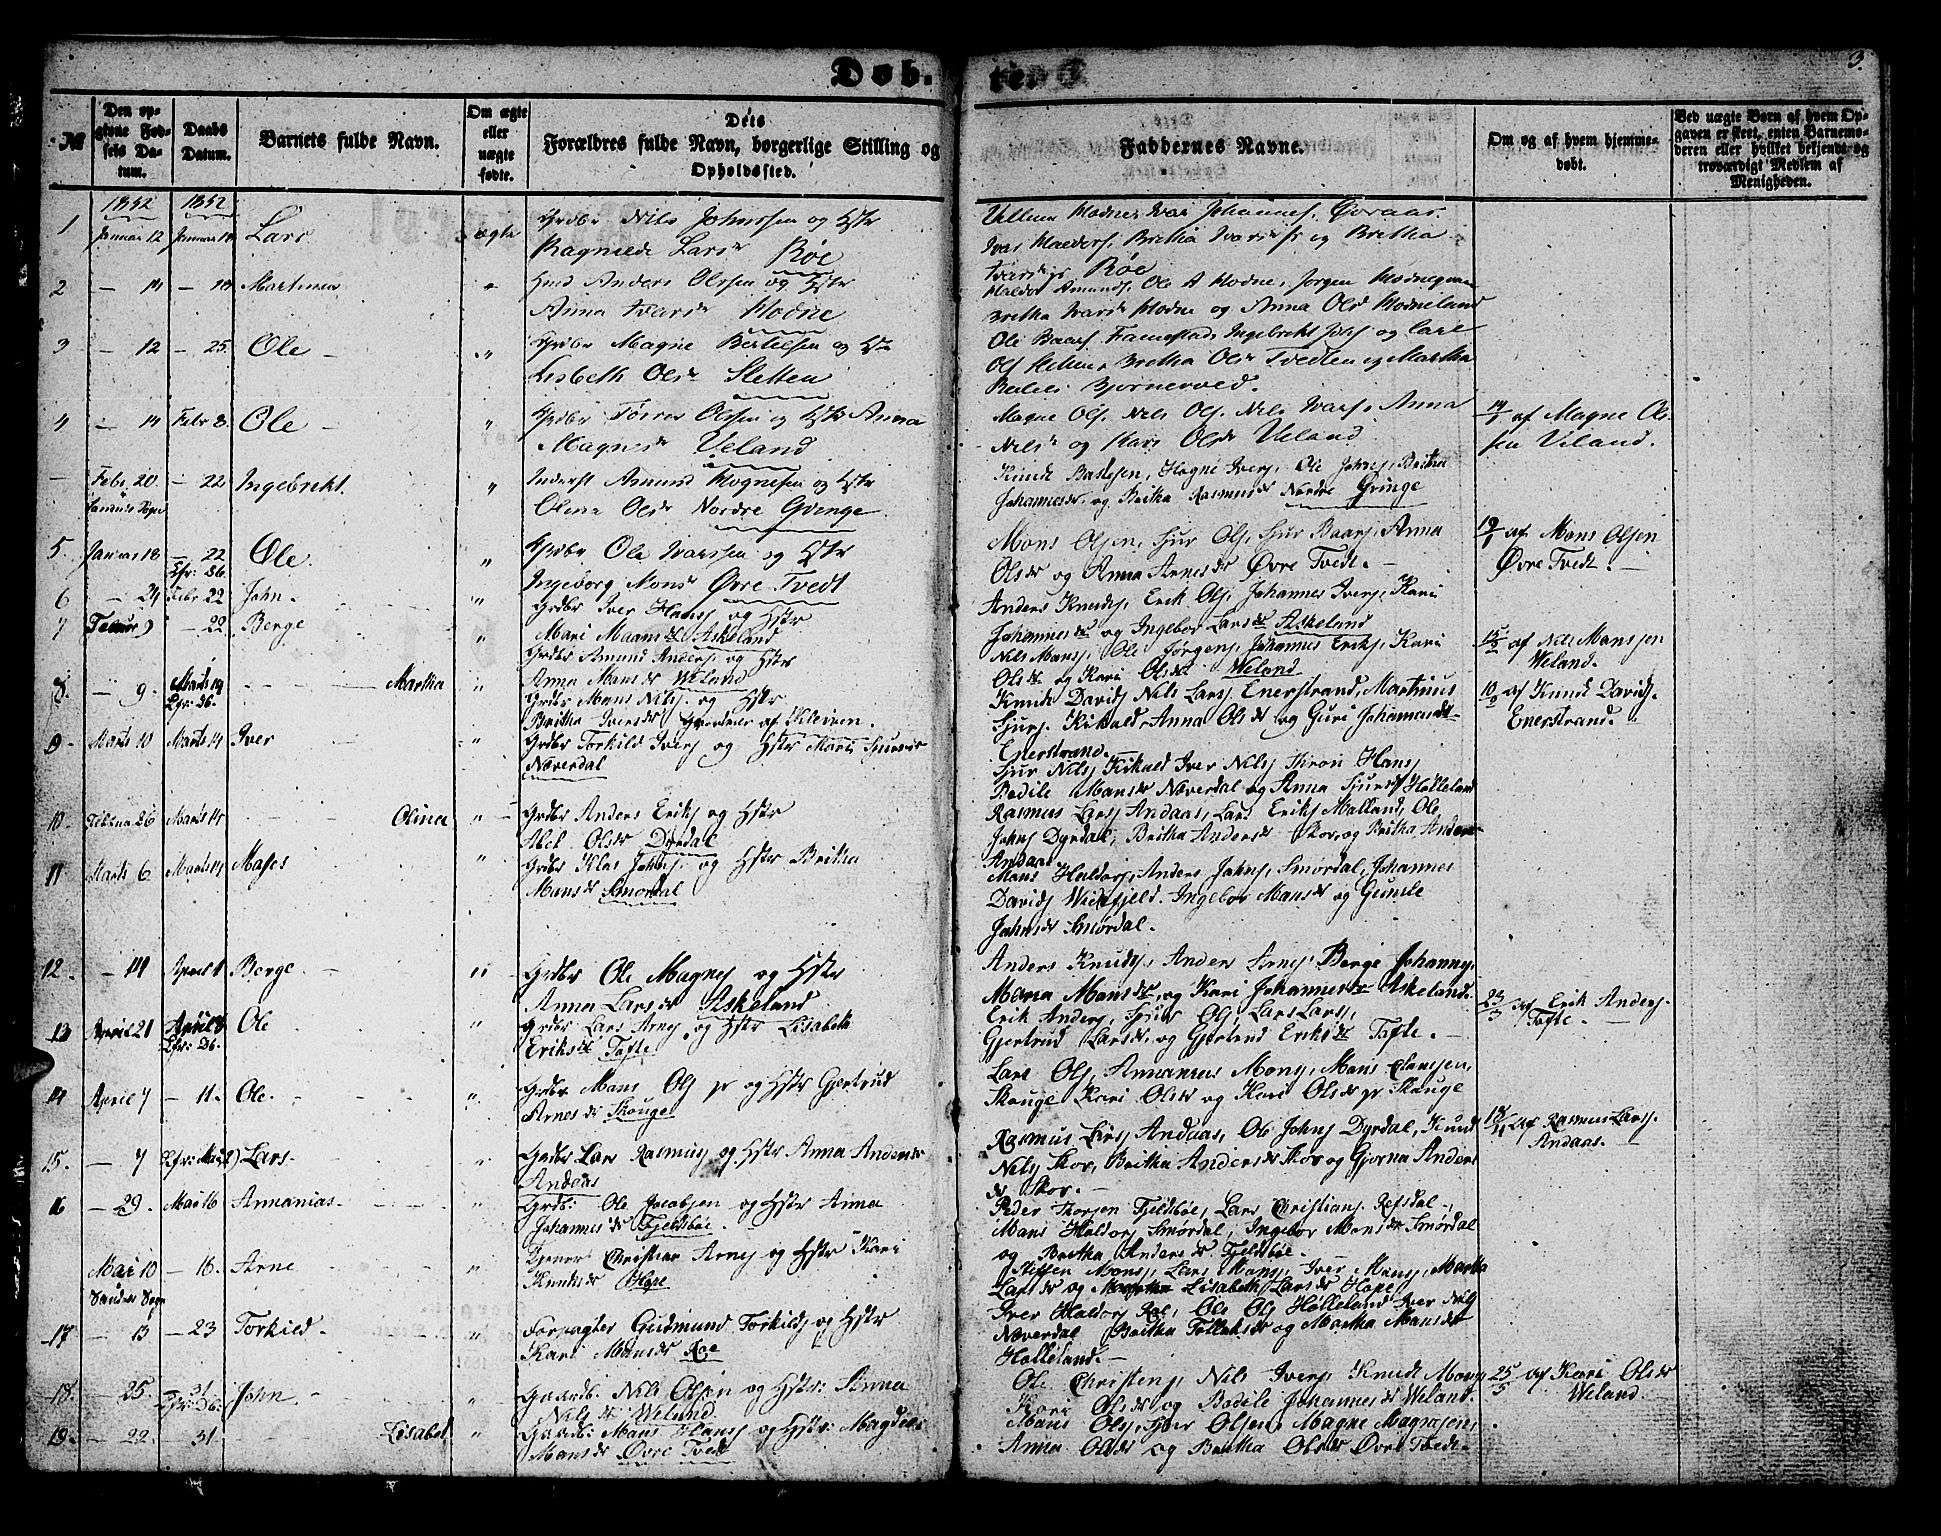 Døb.
3.
№
Den opgivne Fødsels Datum.
Daabs Datum.
Barnets fulde Navn.
Om ægte eller uægte fødte.
Dets Forældres fulde Navn, borgerlige Stilling og Opholdssted.
Faddernes Navne.
Om og af hvem hjemmedøbt.
Ved uægte Børn af hvem Opgaven er skeet, enten Barnemoderen eller hvilket bekjendt og troværdigt Medlem af Menigheden.
1852 1852
1 Januar 12 Januar 18 Lars ægte Grdbr Nils Johnssen og Hstr
Ragnilde Larsdr Røe
Villum Hodne, Ivar Johannesf. Øvraas.
Ivar Haldorf, Britha Ivarsdr og Britha
Ivarsdr Røe
2 — 14 — 18 Martinus " Huusmd Anders Olssen og Hstr
Anna Ivarsdr Hodne
Haldor Amundf, Ole A Hodne, Jørgen
Britha Ivarsdr Hodne og Anna Olsdr Hodneland
3 — 12 — 25 Ole - " Grdbr Magne Bertelsen og Hstr
Lisbeth Olsdr Sletten
Ole Baarf Framestad, Ingebrikt og Lars
Britha Olsdr Tvedten og Martha
Bjørnevold.
4 — 14 Febr 8. Ole - " Grdbr Olssen og Hstr Anna
Magnesdr Veland
Magne Olf, Nils Olf, Nils Ivarf, Anna
Nilsdr og Kari Olsdr Veland
14/1 af Magne Olssen
Veland.
— Febr 20. — 22 Ingebrikt. " Inderst Amund Hognesen og Hstr
Sogn
Olina Olsdr Nordre Gvinge
Knud Baarsen, Hogne Iverf, Ole Johnf, Britha
Johannesdr og Britha Rasmusdr Nordre Gvinge
5. Januar 18 — 22 Ole. " Grdbr Ole Ivarssen og Hstr
Efr: D6.
Ingeborg Monsdr Øvre Tvedt
Mons Olsen, Sjur Olf, Sjur Baarf, Anna
Olsdr og Anna Arnesdr Øvre Tvedt. -
19/1 af Mons Olsen
Øvre Tvedt. —
6 — 24 Febr 22 John. - " Grdbr Iver Hansf og Hstr
Mari Maansdr Askeland
Anders Knudsf, Erik Olsf, Johannes Iversf, Kari
Johannesdr og Ingebor Larsdr Askeland
7 — 22. Berge " Grdbr Amund Andersf og Hstr
Anna Mansdr Weland
Nils Mansf, Ole Jørgensf, Johannes Eriksf, Kari
Olsdr og Kari Olsdr Weland
af Nils Mansen
Weland.
8. — 9. Marts 14 Martha " Grdbr Mans Nilsf. og Hstr
Efr: D6.
Britha Iversdr af Kleiven.
Knud Davidsf Nils Larsf, Enerstrand, Martinus
Sjursf. Kikald, Anna Olsdr og Guri Johannesdr
Enerstrand.
10/2 af Knud Davidsf.
Enerstrand.
9. Marts 10 Marts 14 Iver " Grdbr Torkild Iversf og Hstr Mari Sjursdr
Næverdal
Sjur Nilsf Kikald Iver Nilsf Hansf
Bodile Mansdr Næverdal og Anna Sjursdr Hølleland
10. Februar 26 Marts 14 Olina " Grdbr Anders Eriksf og Hstr
Abel Olsdr Dyrdal
Rasmus Larsf Andaas, Lars Eriksf Molland, Ole
Johnsf Dyrdal, Britha Andersdr Skor, og Britha Andersdr
Andaas
11 Marts 6 Marts 14 Moses " Grdbr Klas Johnsf. og Hstr Britha
Mansdr Smørdal
Mons Haldorsf, Anders Johnsf, Smørdal, Johannes
Davidsf Wiefjeld. Ingebor Mansdr og Gunile
Johnsdr Smørdal.
12. — 14 April 4 Berge " Grdbr Ole Magnesf og Hstr
Anna Larsdr Askeland
Anders Knudsf, Anders Arnesf, Berge Johannesf,
Maria Mansdr og Kari Johannesdr Askeland.
13 April 21 April 8 Ole " Grdbr Lars Arnesf og Hstr Lisabeth
Efr: D6.
Eriksdr Tofte.
Erik Andersf, Sjur Olsf, Lars Larsf,
Gjertrud Larsdr og Gjertrud Eriksdr Tofte. -
23/3 af Erik Andersf.
Tofte. -
14 April 7 — 11. Ole. - " Grdbr Mans Olsf og Hstr Gjertrud
Arnesdr Skouge
Lars Olsf, Annanias Monsf, Mans Clausen,
Skouge Kari Olsdr og Kari Olsdr Skouge
15. — 7 Lars. " Grdbr Lars Rasmusf og Hstr Anna Andersdr
Andaas
Rasmus Larsf Andaas, Ole Johnsf Dyrdal, Knud
Nilsf Skor, Britha Andersdr Skor og Gjorna Anders
dr Skor. -
af Rasmus Larsf.
Andaas.
16 — 29. Mai 16 Annanias. " Grdb: Ole Jacobsen og Hstr Anna
Johannesdr Fjeldsbøe.
Peder Thorsen Fjeldsbøe, Lars Christiansf. Refsdal -,
Mans Haldorsf Smørdal, Ingebor Mansdr Smørdal
og Britha Andersdr Fjeldsbøe.
Mai 10 — 16. Arne " Tjener Christian Arnesf og Hstr Kari
Sandes Sogn
Knudsdr Hope
Steffen Monsf, Lars Monsf, Iver Monsf, Martha
Larsdr og Lisabeth Larsdr Hope
17 — 13 — 23 Torkild. " Forpagter Gudmund Torkildsf og Hstr
Kari Mansdr Røe
Iver Haldorsf Røe, Ole Olsf Hølleland Iver Nilsf
Næverdal Britha Tollaksdr og Martha Mansdr
Hølleland. -
18. — 25. 31 John " Gaardb: Nils Olsen og Hstr: Anna
Efr: D6.
Nilsdr Weland.
Ole Christensf, Nils Iversf, Knud Monsf
Kari Olsdr og Bodile Johannesdr Weland.
25/5 af Kari Olsdr
Weland.
19. — 22. 31. Lisabet " Gaardb: Mans Hansf og Hstr: Magdeli
Mansdr Øvre Tvedt
Mans Olsf, Iver Olsen, Magne Magnesen,
Anna Olsdr og Britha Olsdr Øvre Tvedt.